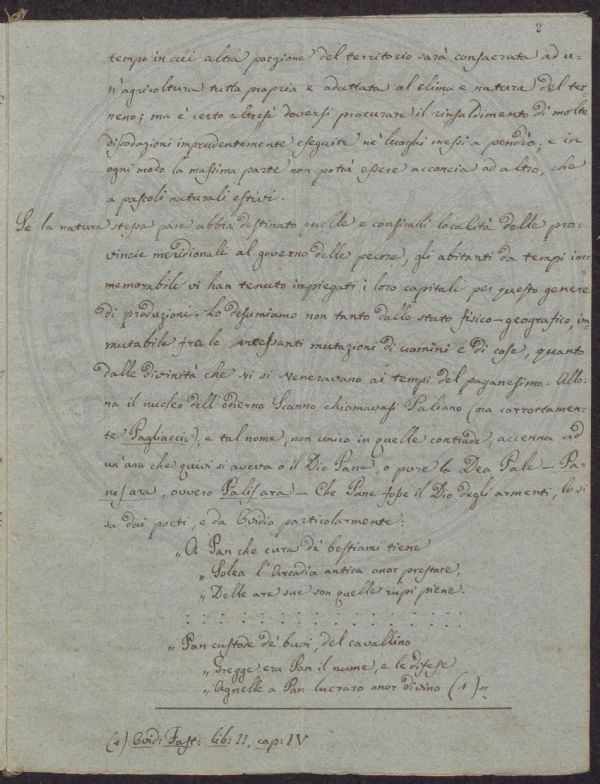 2
tempo in cui altra porzione del territorio sarà consacrata ad u-
n'agricoltura tutta propria e adattata al clima e natura del ter-
reno; ma è certo altresì doversi procurare il rinsaldimento di molte
dissodazioni imprudentemente eseguite ne' luoghi messi a pendìo; e in
ogni modo la massima parte non potrà essere acconcia ad altro, che
a pascoli naturali estivi.
Se la natura stessa pare abbia destinato quelle e consimili località delle pro-
vincie meridionali al governo delle pecore, gli abitanti da tempi im-
memorabili vi han tenuto impiegati i loro capitali per questo genere
di produzioni. Lo desumiamo non tanto dallo stato fisico-geografico, im-
mutabile fra le incessanti mutazioni di uomini e di cose, quanto
dalle divinità che vi si veneravano ai tempi del paganesimo. Allo-
ra il nucleo dell'odierno Scanno chiamavasi Paliano (ora corrottamen-
te Pagliaccio); e tal nome, non unico in quelle contrade, accenna ad
un'ara che quivi si aveva o il Dio Pane, o pure la Dea Pale - Pa-
nis ara, ovvero Palis ara - Che Pane fosse il Dio degli armenti, lo si
sa dai poeti, e da Ovidio particolarmente:
„ A Pan che cura de' bestiami tiene
„ Solea l'Arcadia antica onor prestare,
„ Delle are sue son quelle rupi piene.
. . . . . . . . . . . . . . . .
„ Pan custode de' buoi, del cavallino
„ Gregge era Pan il nume, e le difese
„ Agnelle a Pan lucraro onor divino (1) „
(1) Ovid: Fast: lib: II, cap: IV